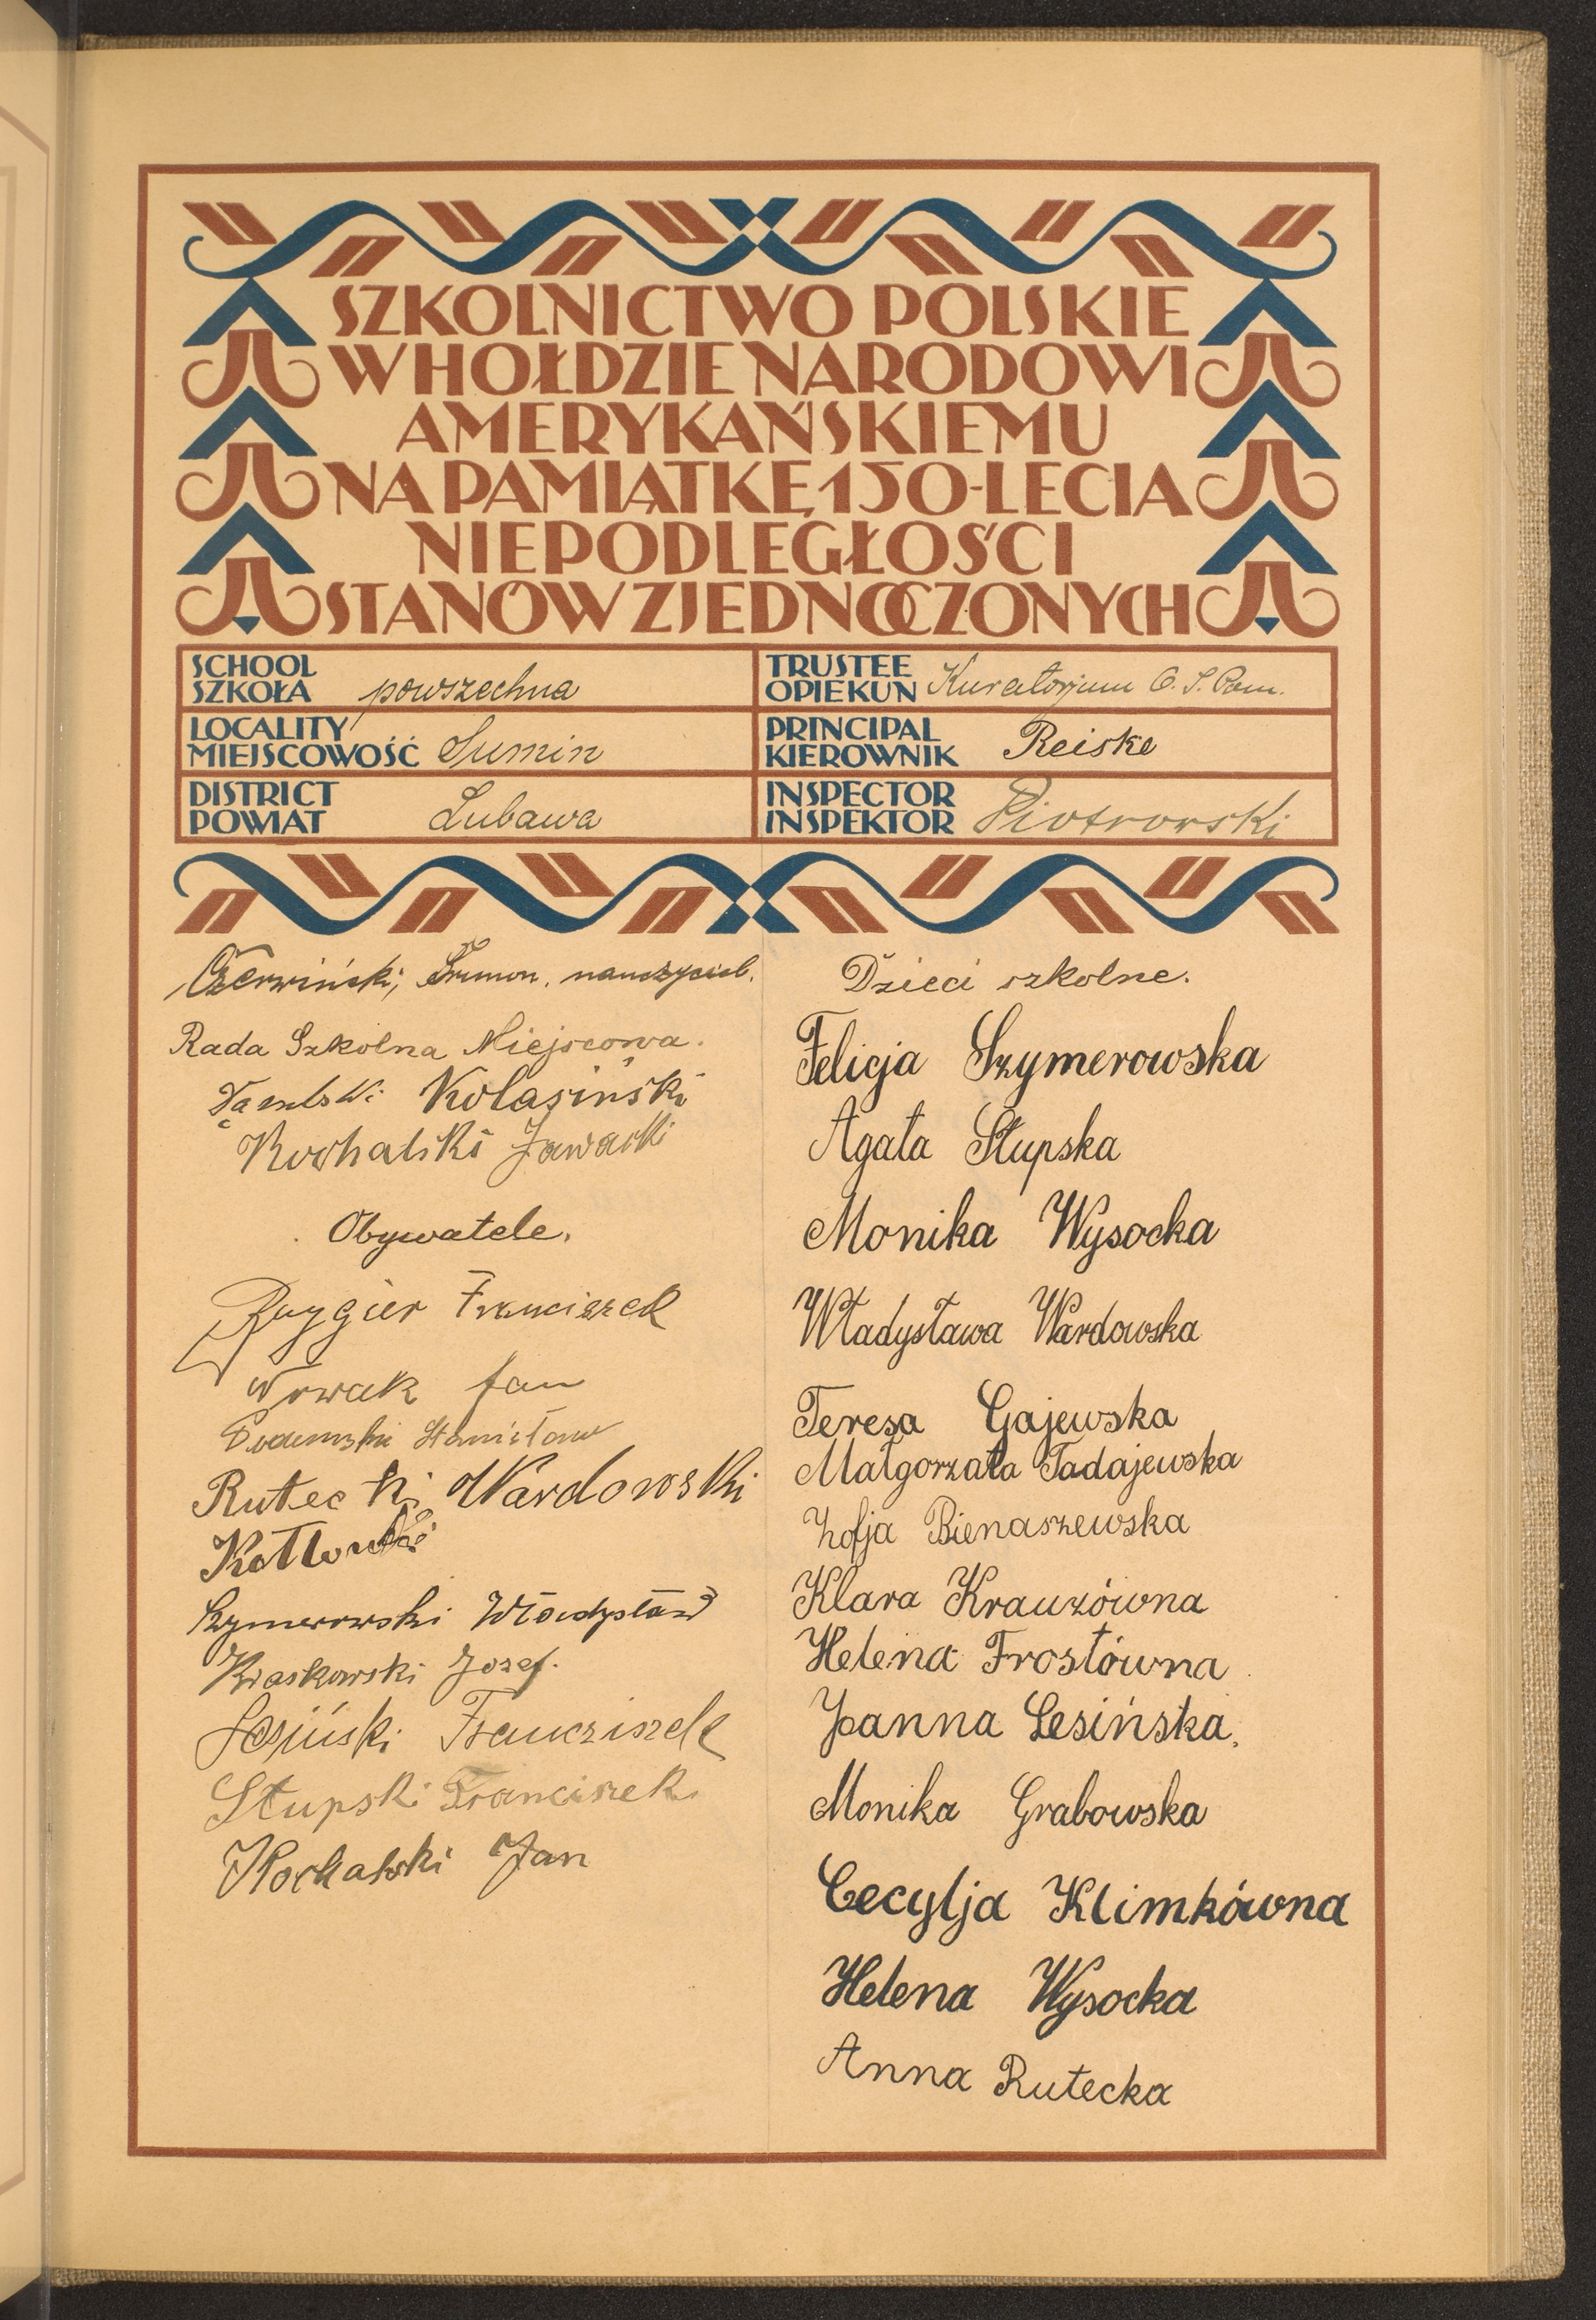 SZKOLNICTWO POLSKIE
W HOŁDZIE NARODOWI
AMERYKAŃSKIEMU
NA PAMIĄTKĘ 150-LECIA
NIEPODLEGŁOŚCI
STANÓW ZJEDNOCZONYCH
SCHOOL
SZKOŁA powszechna
LOCALITY
MIEJSCOWOŚĆ Sumin
DISTRICT
POWIAT Lubawa
TRUSTEE
OPIEKUN Kuratorjum O. S. Pom.
PRINCIPAL
KIEROWNIK Reiske
INSPECTOR
INSPEKTOR Piotrowski
Czerwiński, nauczyciel.
Rada Szkolna Miejscowa.
Kolasiński
Kochalski Zawacki
Obywatele.
Ruygier Franciszek
Nowak Jan
Stanisław
Rutecki Wardowski
Kotlowski
Szymerowski Władysław
Kwaskowski Jozef.
Lesiński Franciszek
Słupski Franciszek
Kochalski Jan
Dzieci szkolne.
Felicja Szymerowska
Agata Słupska
Monika Wysocka
Władysława Wardowska
Teresa Gajewska
Małgorzata Tadajewska
Zofja Bienaszewska
Klara Krauzówna
Helena Frostówna
Joanna Lesińska.
Monika Grabowska
Cecylja Klimkówna
Helena Wysocka
Anna Rutecka